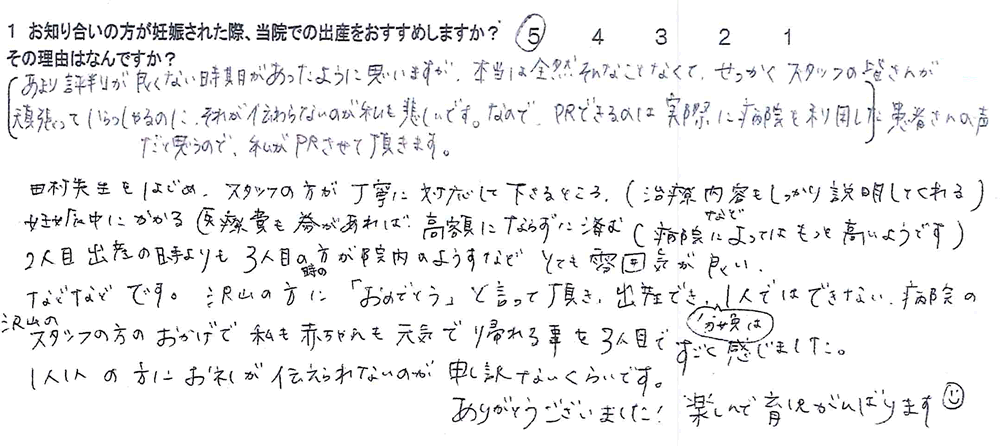 1 お知り合いの方が妊娠された際、当院での出産をおすすめしますか? ⑤ 4 3 2 1
その理由はなんですか?
(あまり評判が良くない時期があったように思いますが、本当は全然そんなことなくて、せっかくスタッフの皆さんが
頑張っていらっしゃるのに、それが伝わらないのが私も悲しいです。なので、PRできるのは実際に病院を利用した)患者さんの声
だと思うので、私がPRさせて頂きます。
田村先生をはじめ、スタッフの方が丁寧に対応して下さるところ、(治療内容もしっかり説明してくれる)
妊娠中にかかる医療費も券があれば高額にならずに済む(病院によってはもっと高いようです)
など
2人目出産の時よりも3人目の時の方が院内のようすなどとても雰囲気が良い、
などなどです。沢山の方に「おめでとう」と言って頂き、出産でき、1人ではできない、病院の
沢山のスタッフの方のおかげで私も赤ちゃんも元気で帰れる事を3人目ですごく感じました。
分娩は
1人1人の方にお礼が伝えられないのが申し訳ないくらいです。
ありがとうございました! 楽しんで育児がんばります